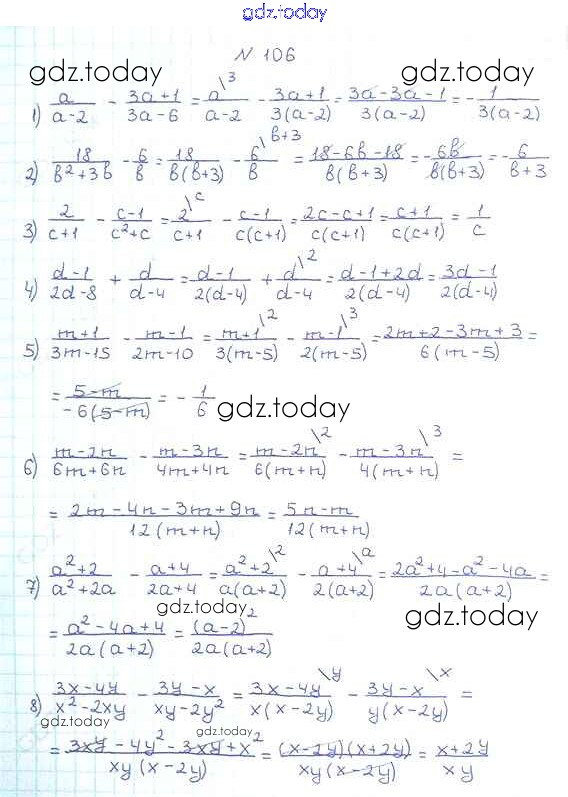 gdz.today
N 106
gdz.today gdz.today
1) a/(a-2) - (3a+1)/(3a-6) = a\3/(a-2) - (3a+1)/(3(a-2)) = (3a-3a-1)/(3(a-2)) = -1/(3(a-2))
2) 18/(b²+3b) - 6/b = 18/(b(b+3)) - 6\b+3/b = (18-6b-18)/(b(b+3)) = -6b/(b(b+3)) = -6/(b+3)
3) 2/(c+1) - (c-1)/(c²+c) = 2\c/(c+1) - (c-1)/(c(c+1)) = (2c-c+1)/(c(c+1)) = (c+1)/(c(c+1)) = 1/c
4) (d-1)/(2d-8) + d/(d-4) = (d-1)/(2(d-4)) + d\2/(d-4) = (d-1+2d)/(2(d-4)) = (3d-1)/(2(d-4))
5) (m+1)/(3m-15) - (m-1)/(2m-10) = (m+1)\2/(3(m-5)) - (m-1)\3/(2(m-5)) = (2m+2-3m+3)/(6(m-5)) =
= (5-m)/(-6(5-m)) = -1/6 gdz.today
6) (m-2n)/(6m+6n) - (m-3n)/(4m+4n) = (m-2n)\2/(6(m+n)) - (m-3n)\3/(4(m+n)) =
= (2m-4n-3m+9n)/(12(m+n)) = (5n-m)/(12(m+n))
7) (a²+2)/(a²+2a) - (a+4)/(2a+4) = (a²+2)\2/(a(a+2)) - (a+4)\a/(2(a+2)) = (2a²+4-a²-4a)/(2a(a+2)) =
gdz.today gdz.today
= (a²-4a+4)/(2a(a+2)) = (a-2)²/(2a(a+2))
8) (3x-4y)/(x²-2xy) - (3y-x)/(xy-2y²) = (3x-4y)\y/(x(x-2y)) - (3y-x)\x/(y(x-2y)) =
gdz.today gdz.today
= (3xy-4y²-3xy+x²)/(xy(x-2y)) = (x-2y)(x+2y)/(xy(x-2y)) = (x+2y)/(xy)